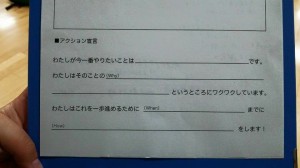 ■アクション宣言
わたしが今一番やりたいことは です。
わたしはそのことの (Why)
というところにワクワクしています。
わたしはこれを一歩進めるために (When) までに
(How) をします！